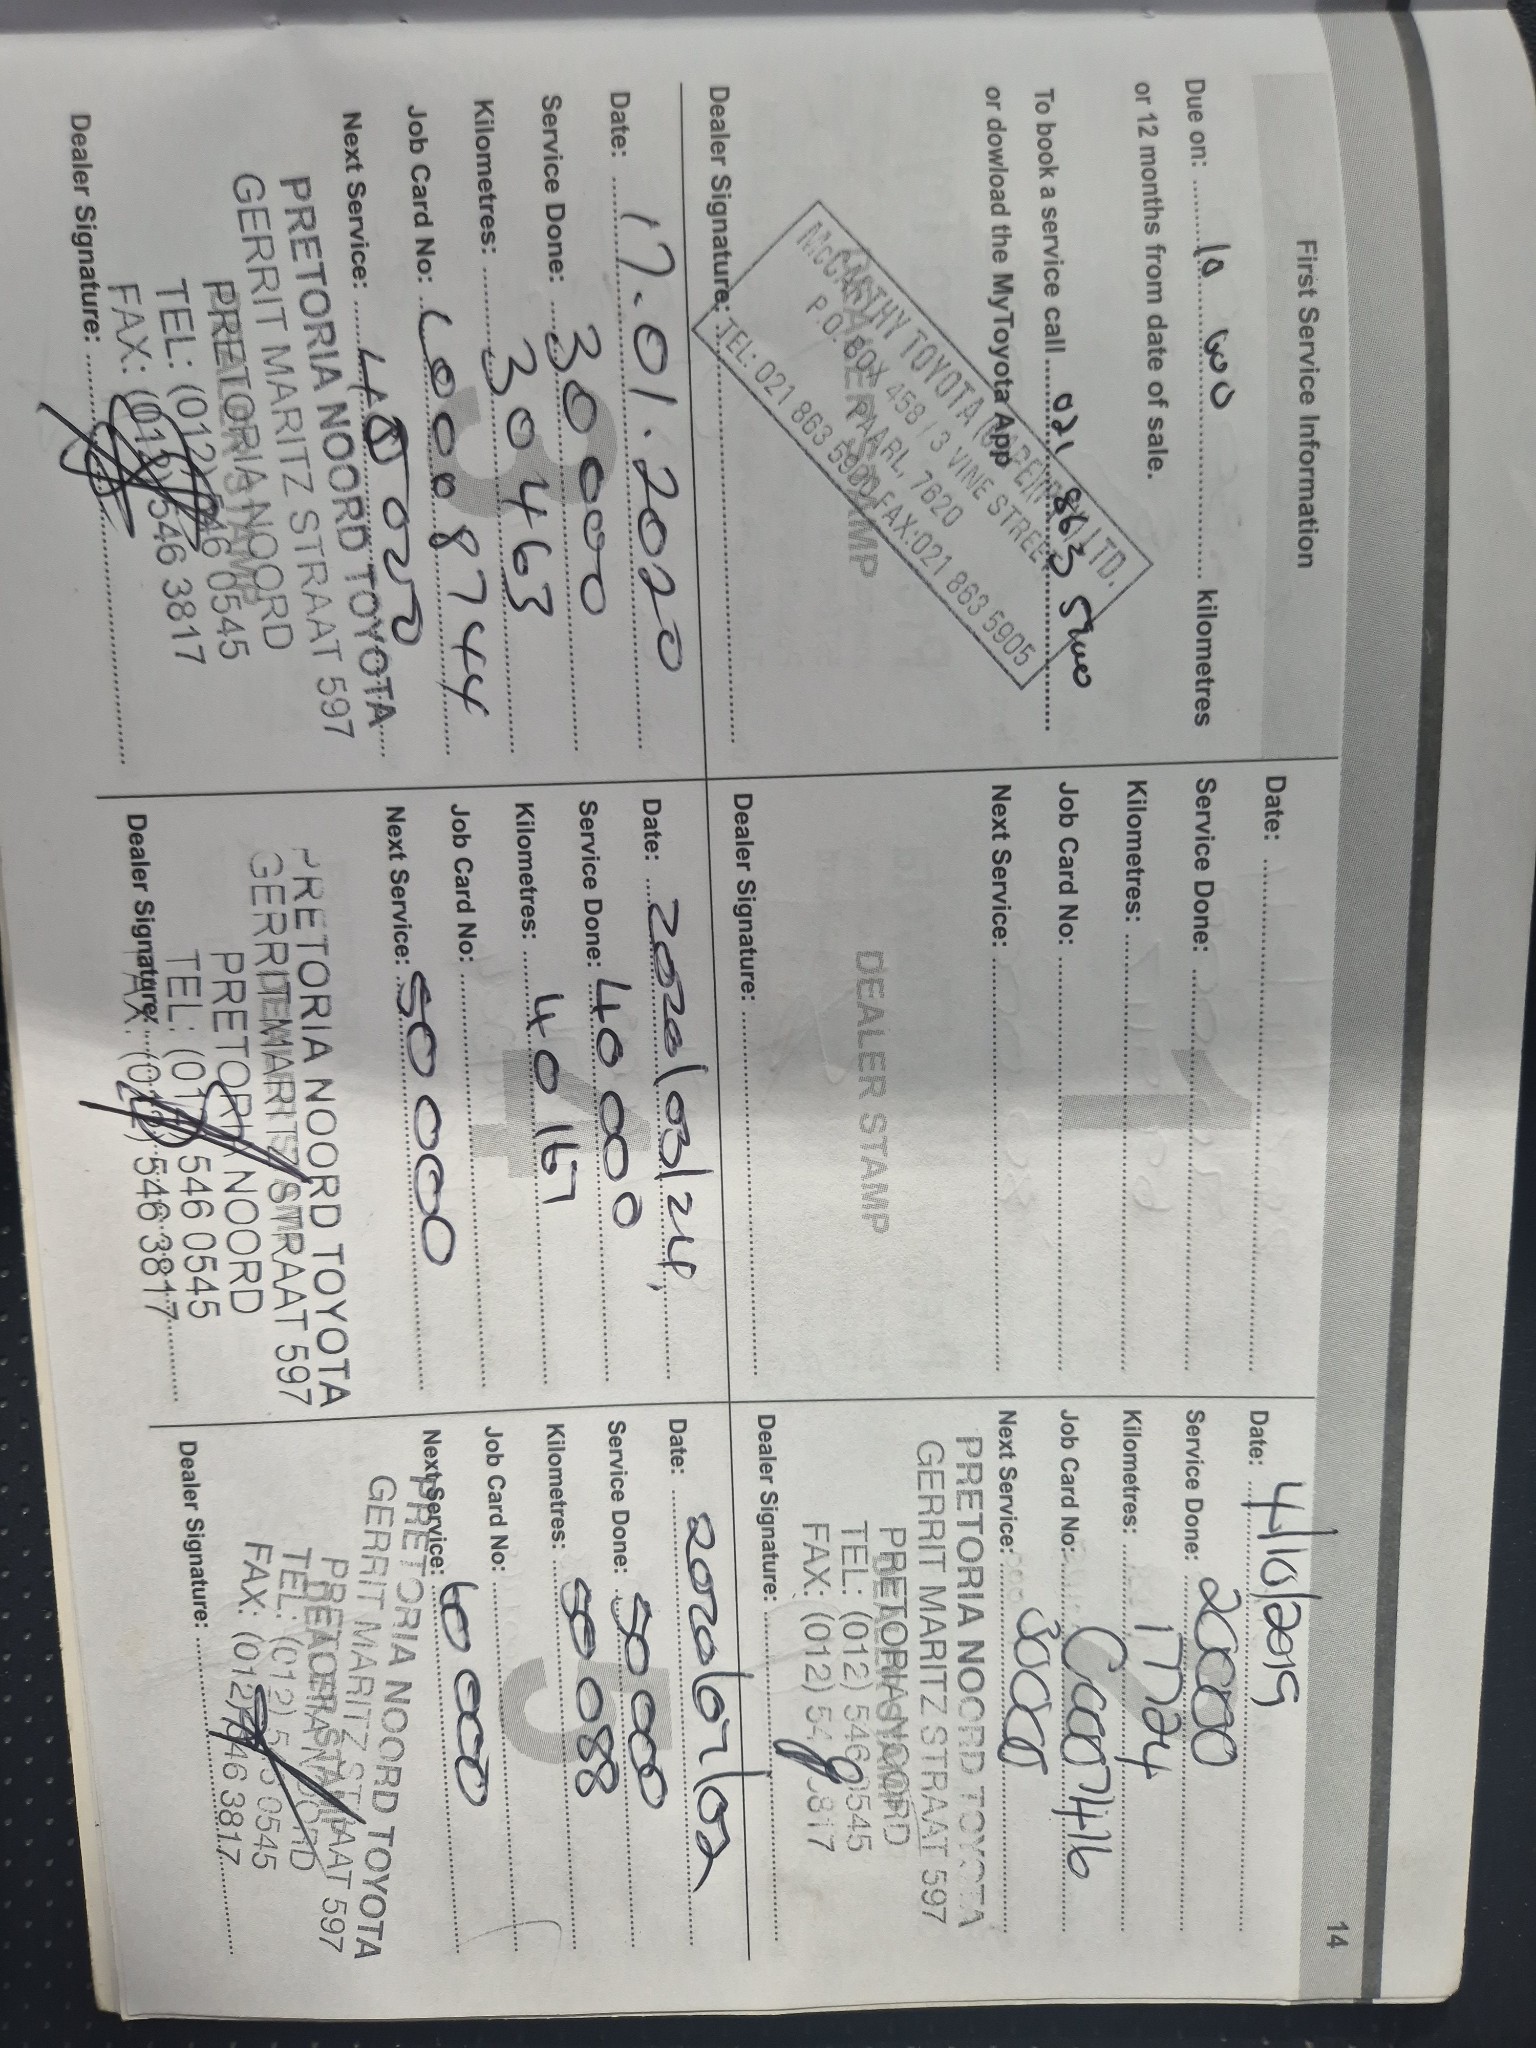 14
First Service Information
Due on: 10 000 kilometres
or 12 months from date of sale.
To book a service call 021 863 5900
or dowload the MyToyota App
McCARTHY TOYOTA LTD.
P.O. BOX 458 / 3 VINE STREET
PAARL, 7620
TEL: 021 863 5900 FAX:021 863 5905
Dealer Signature:
1
Date:
Service Done:
Kilometres:
Job Card No:
Next Service:
DEALER STAMP
Dealer Signature:
Date: 4/10/2019
Service Done: 20000
Kilometres: 17724
Job Card No:
Next Service: 30000
PRETORIA NOORD TOYOTA
GERRIT MARITZ STRAAT 597
PRETORIA NOORD
TEL: (012) 546 0545
FAX: (012) 546 3817
Dealer Signature:
3
Date: 17.01.2020
Service Done: 30000
Kilometres: 30463
Job Card No: C0008744
Next Service: 40000
PRETORIA NOORD TOYOTA
GERRIT MARITZ STRAAT 597
PRETORIA NOORD
TEL: (012) 546 0545
FAX: (012) 546 3817
Dealer Signature:
4
Date: 2020/03/24
Service Done: 40000
Kilometres: 40167
Job Card No:
Next Service: 50 000
PRETORIA NOORD TOYOTA
GERRIT MARITZ STRAAT 597
PRETORIA NOORD
TEL: (012) 546 0545
FAX: (012) 546 3817
Dealer Signature:
5
Date: 2020/07/02
Service Done: 50 000
Kilometres: 50 088
Job Card No:
Next Service: 60 000
PRETORIA NOORD TOYOTA
GERRIT MARITZ STRAAT 597
PRETORIA NOORD
TEL: (012) 546 0545
FAX: (012) 546 3817
Dealer Signature: